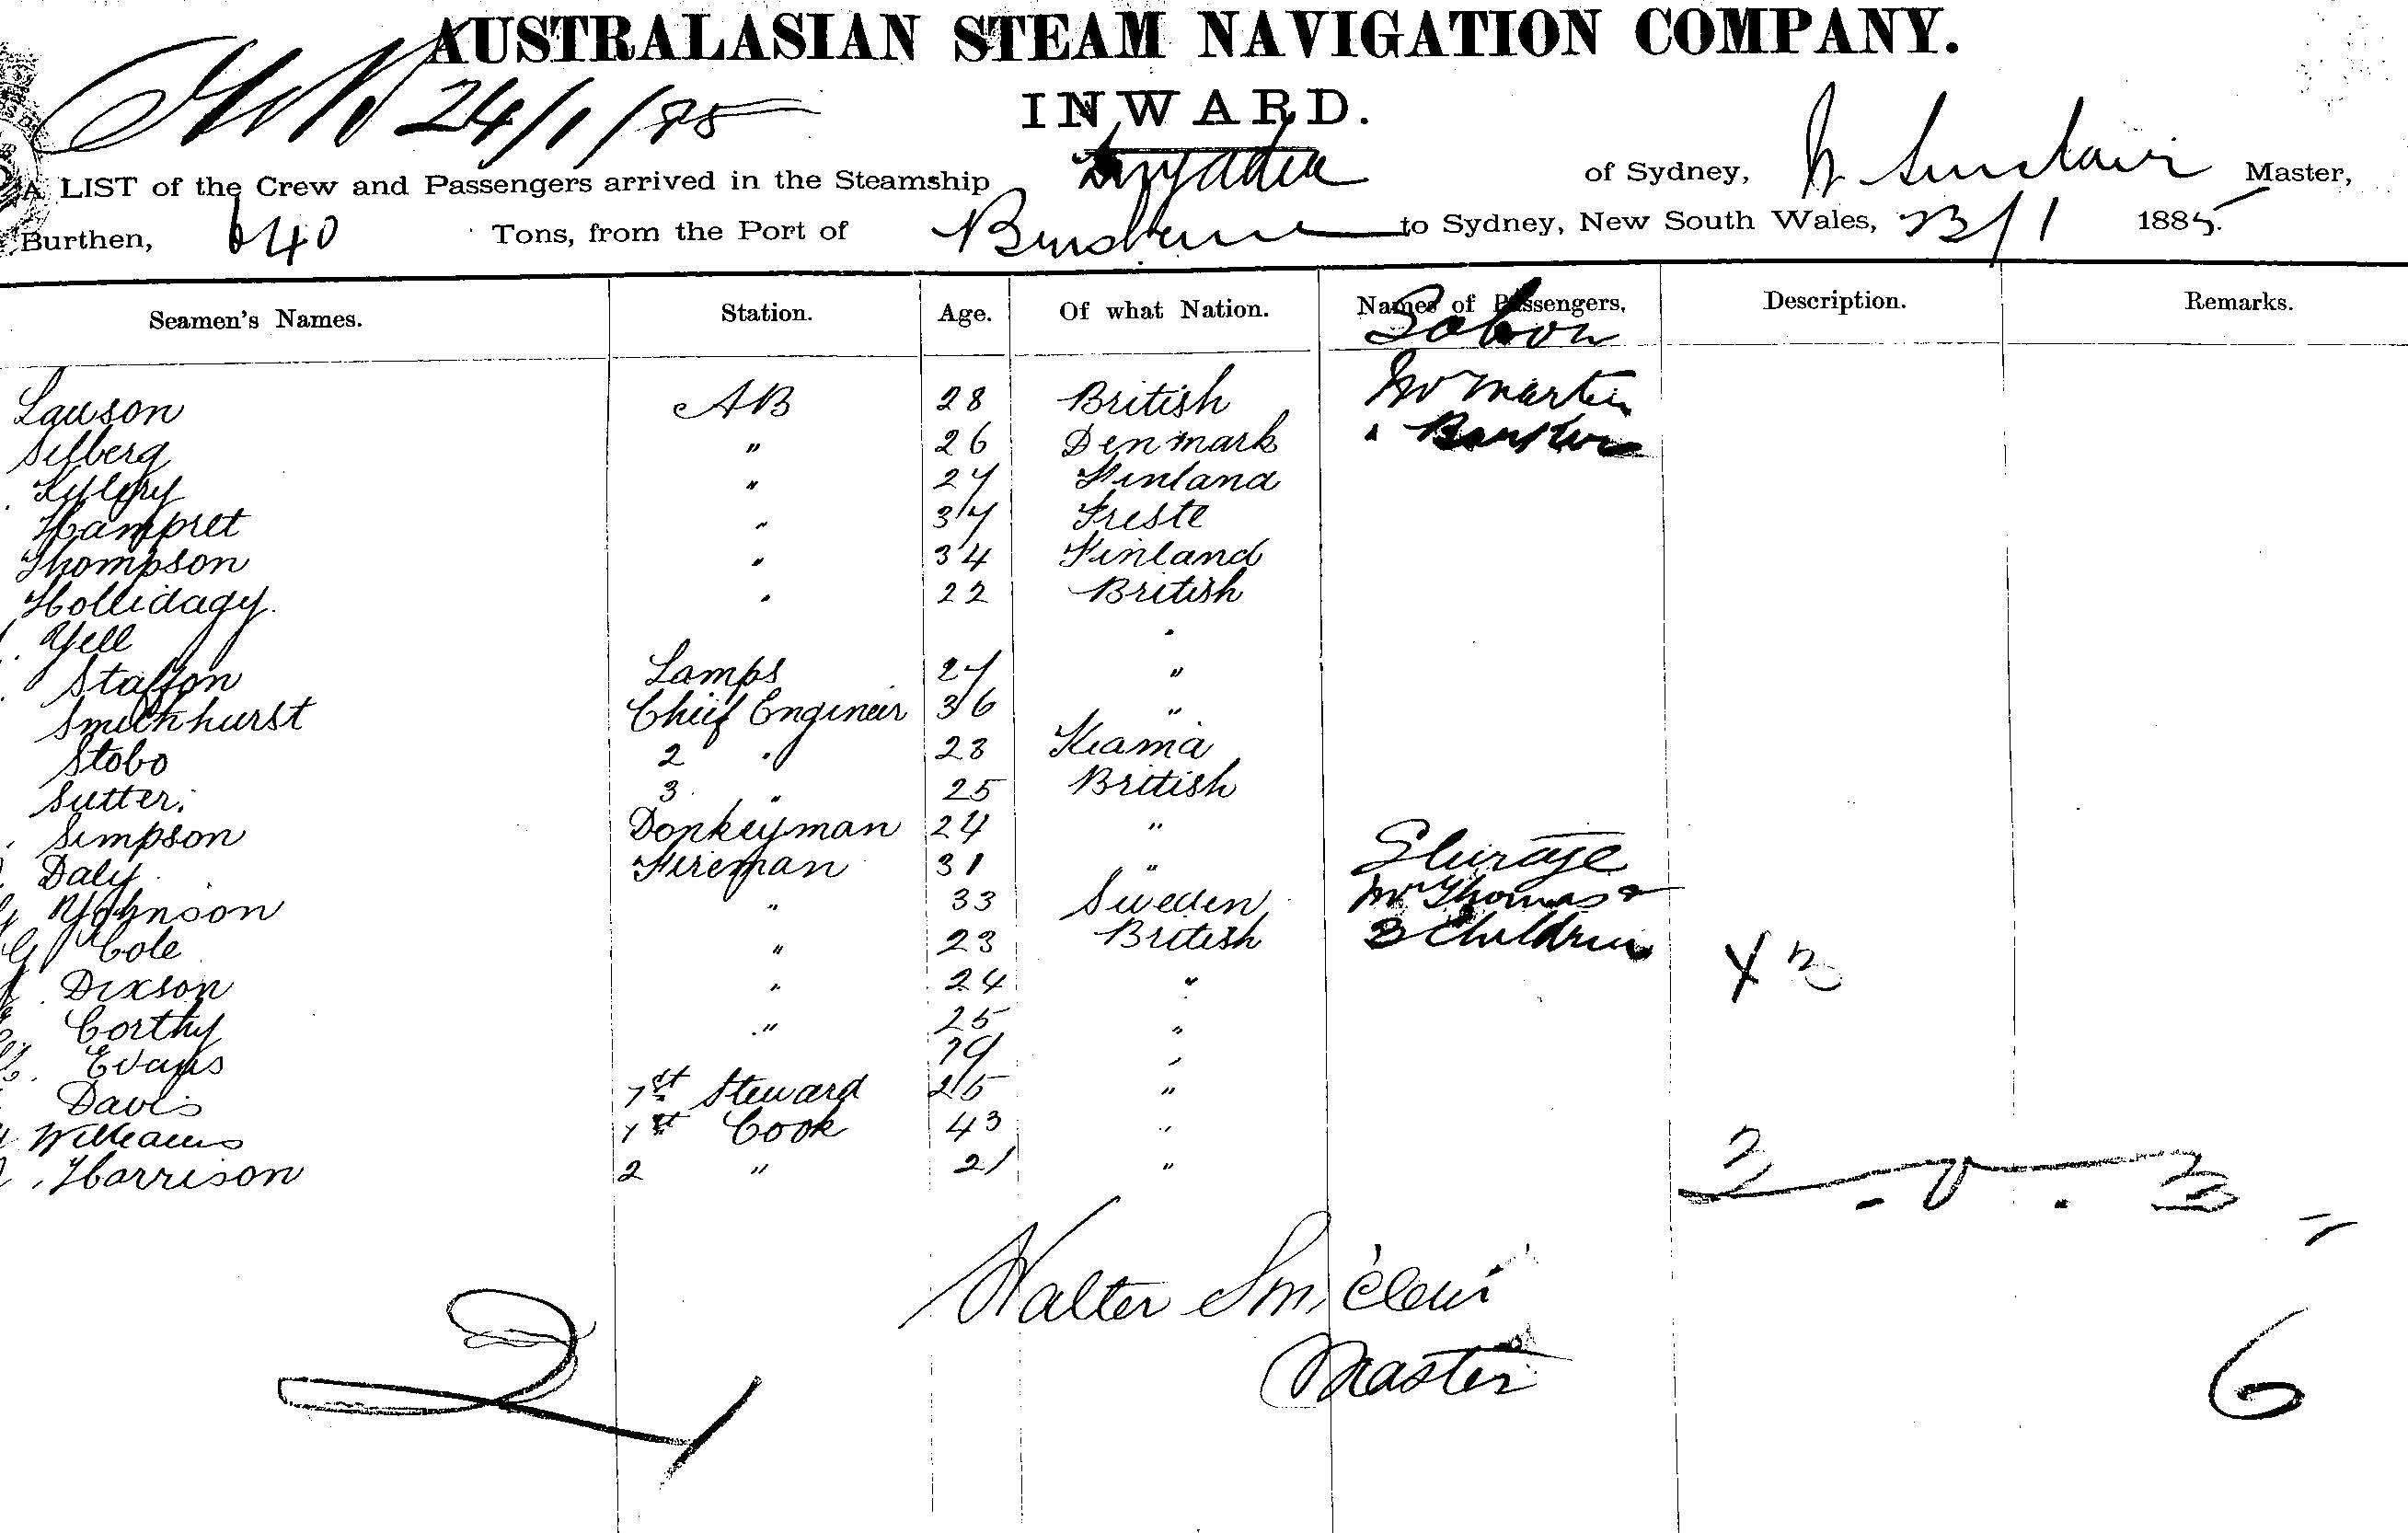 AUSTRALASIAN STEAM NAVIGATION COMPANY.
24/1/85
INWARD.
A LIST of the Crew and Passengers arrived in the Steamship of Sydney, W Sinclair Master,
Burthen, 640 Tons, from the Port of Brisbane to Sydney, New South Wales, 23/1 1885.
Seamen's Names. Station. Age. Of what Nation. Names of Passengers, Description. Remarks.
Saloon
Lawson AB 28 British Mr Martin
Silberg " 26 Denmark "
" 27 Finland
Hampret " 37 Trieste
Thompson " 34 Finland
Hollidagy " 22 British
Yell "
Lamps 27 "
Smithhurst Chief Engineer 36 "
Stobo 2 " 23 Kiama
Sutter. 3 " 25 British
Simpson Donkeyman 24 "
Daly Fireman 31 " Steerage
Johnson " 33 Sweden Mr Thomas &
G Cole " 23 British 3 Children
Dixson " 24 " X 3
Corthy " 25 "
Evans 19 "
Davis 1st Steward 25 "
Williams 1st Cook 43 "
Harrison 2 " 21 "
Walter Sinclair
Master
21
6